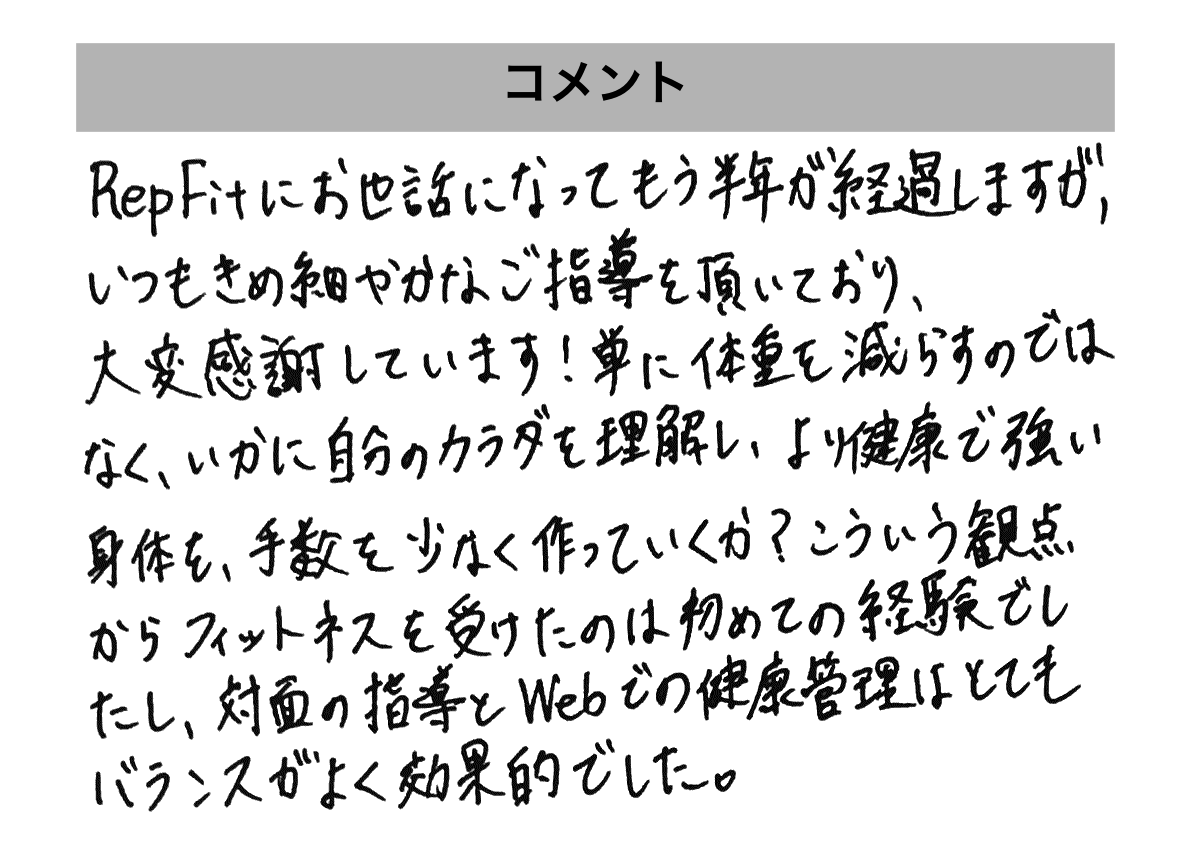 コメント
RepFitにお世話になってもう半年が経過しますが,
いつもきめ細やかなご指導を頂いており、
大変感謝しています!単に体重を減らすのでは
なく、いかに自分のカラダを理解し、より健康で強い
身体を、手数を少なく作っていくか?こういう観点
からフィットネスを受けたのは初めての経験でし
たし、対面の指導とWebでの健康管理はとても
バランスがよく効果的でした。